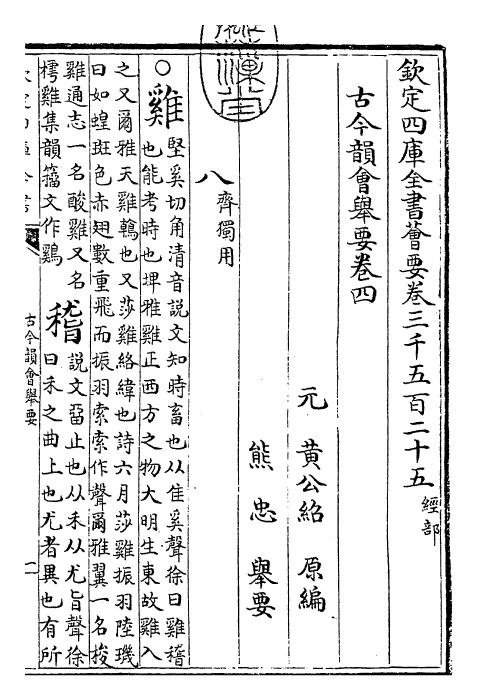 欽定四庫全書薈要卷三千五百二十五 經部
古今韻會舉要卷四
元 黃公紹 原編
熊忠 舉要
八齊獨用
○雞 堅奚切角清音說文知時畜也从隹奚聲徐曰雞稽
也能考時也埤雅雞正西方之物大明生東故雞入
之又爾雅天雞鶾也又莎雞絡緯也詩六月莎雞振羽陸璣
曰如蝗斑色赤翅數重飛而振羽索索作聲爾雅翼一名梭
雞通志一名酸雞又名
樗雞集韻籕文作鷄
稽 說文畱止也从禾从尤旨聲徐
曰禾之曲上也尤者異也有所
古今韻會舉要